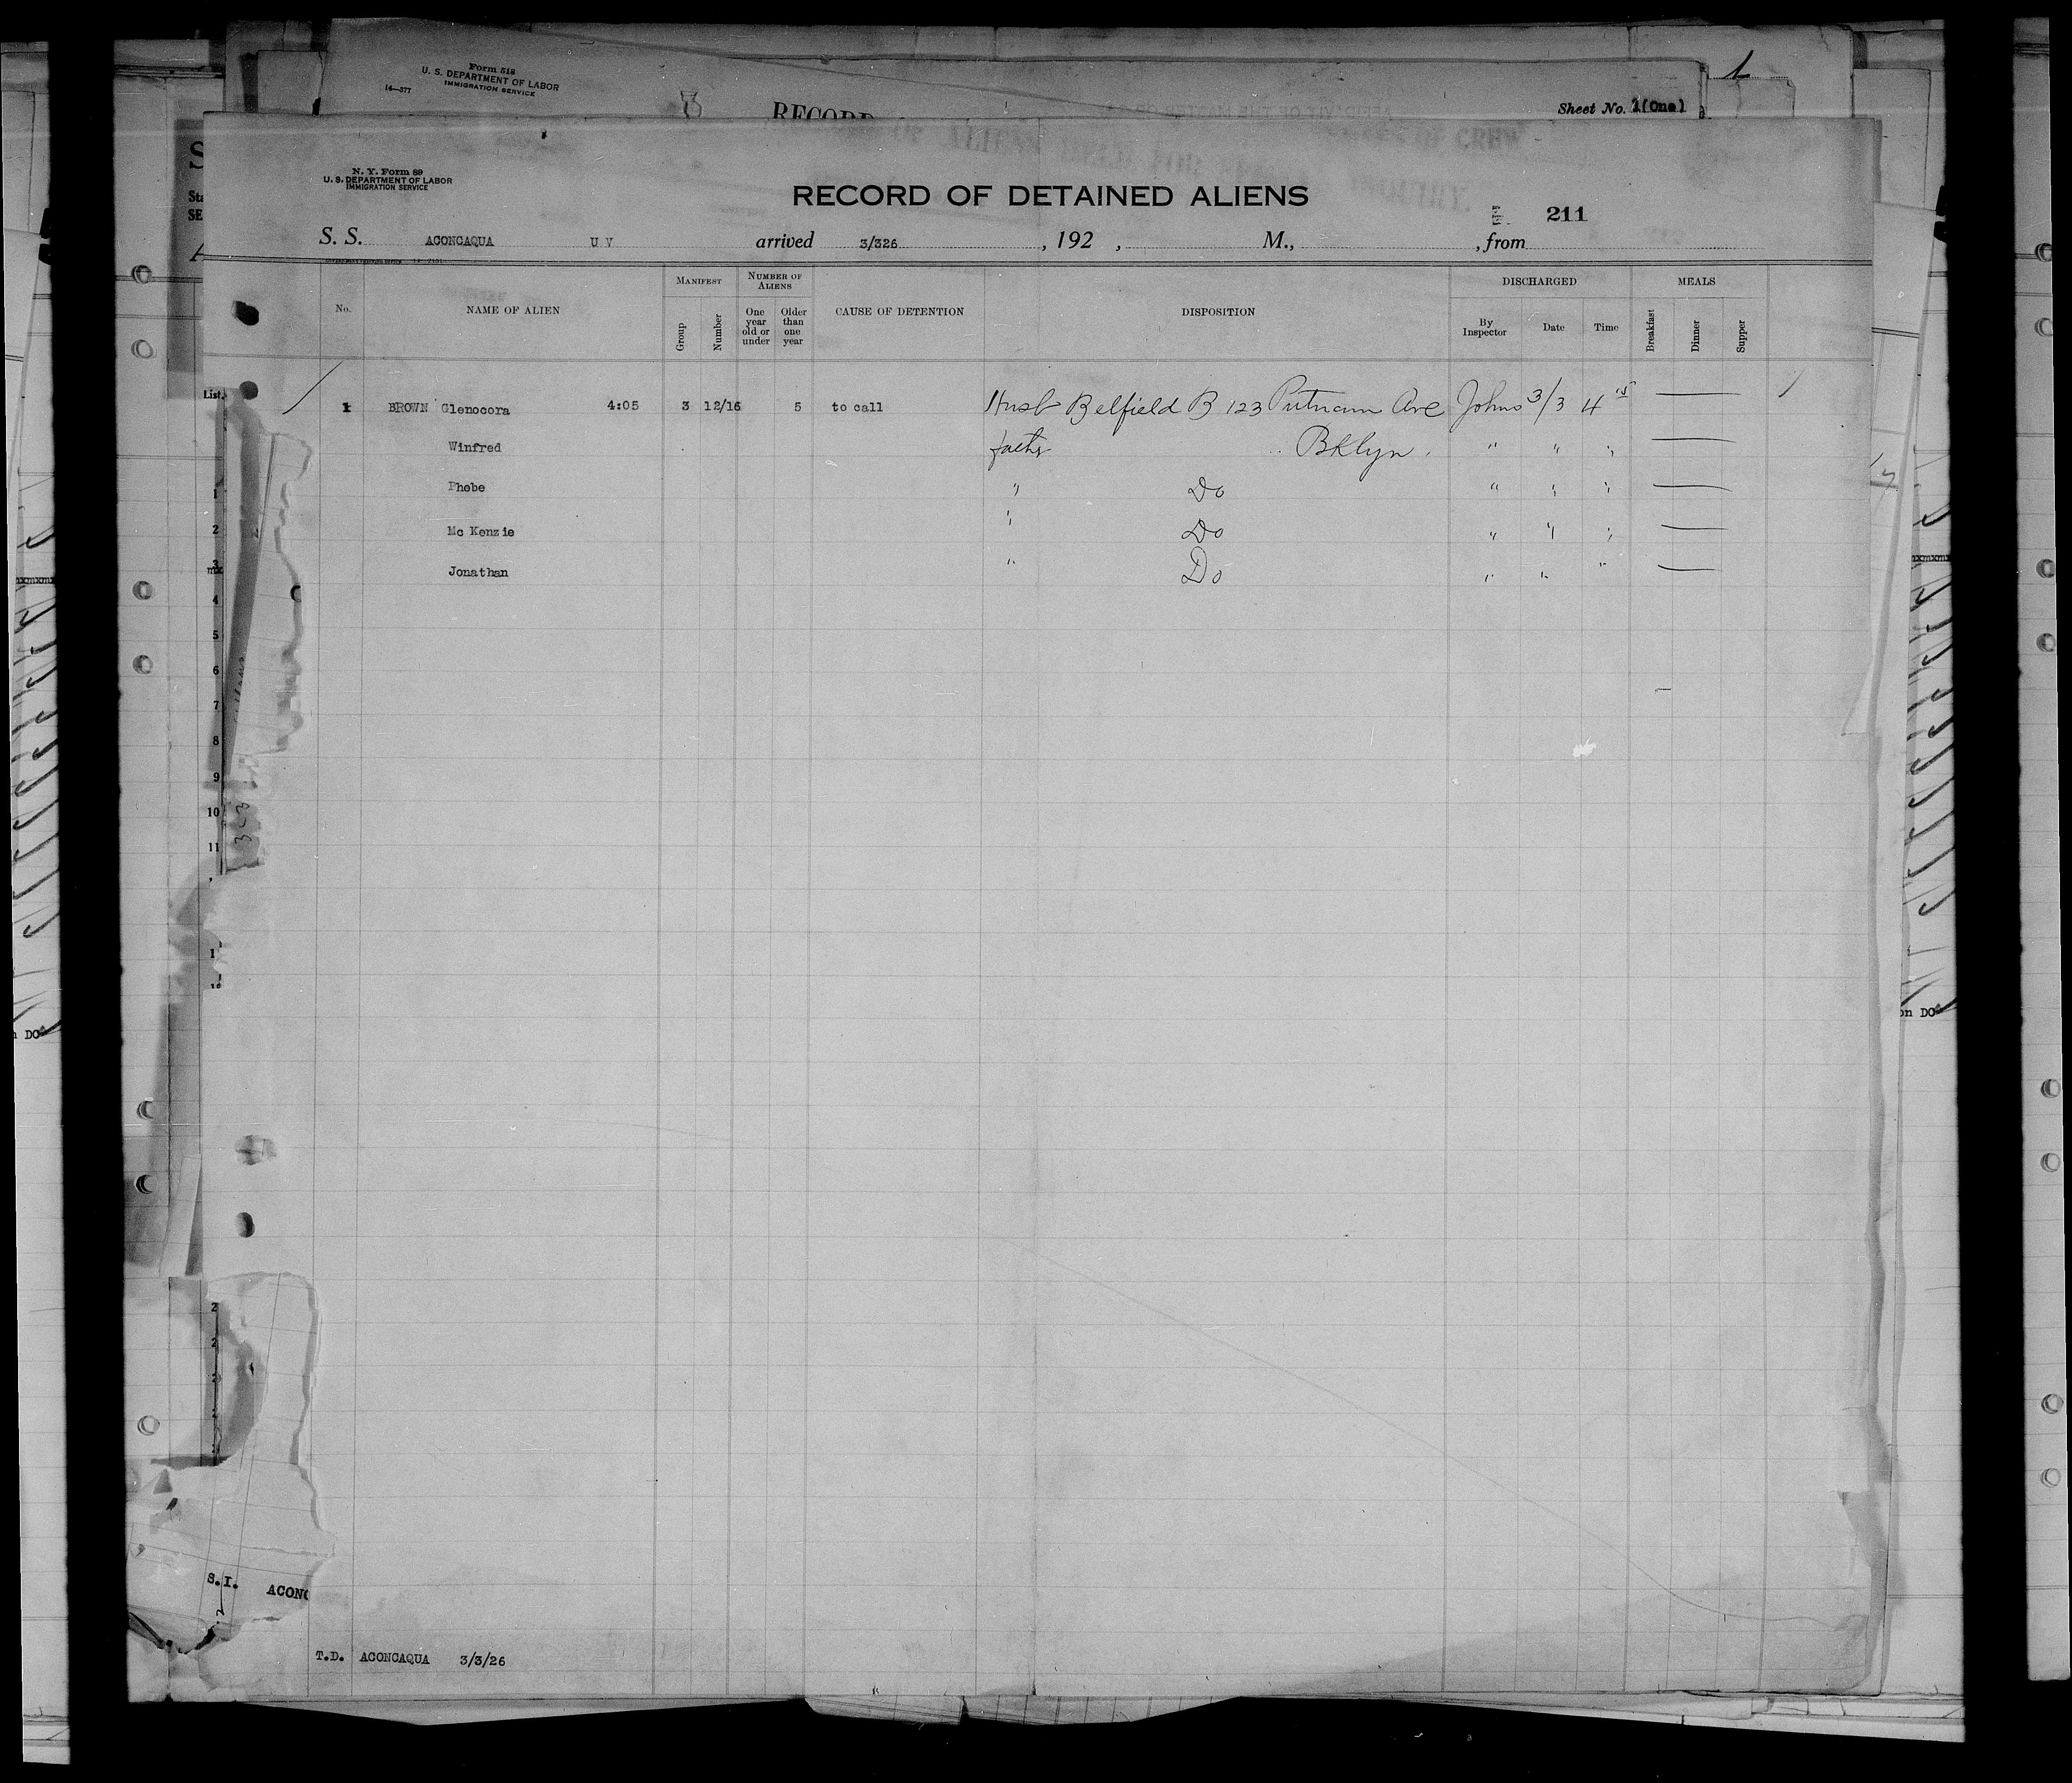 Form 518
U. S. DEPARTMENT OF LABOR
IMMIGRATION SERVICE
14—377
RECORD
Sheet No. 1(One)
1
N. Y. Form 89
U. S. DEPARTMENT OF LABOR
IMMIGRATION SERVICE
RECORD OF DETAINED ALIENS
211
S. S. ACONCAQUA U V arrived 3/326 , 192 , M., , from
No. NAME OF ALIEN MANIFEST Group Number NUMBER OF ALIENS One year old or under Older than one year CAUSE OF DETENTION DISPOSITION DISCHARGED By Inspector Date Time MEALS Breakfast Dinner Supper
1 BROWN Glenocora 4:05 3 12/16 5 to call Husb Belfield B 123 Putnam Ave Johns 3/3 4 15
Winfred father Bklyn. " " "
Phebe " Do " " "
Mc Kenzie " Do " " "
Jonathan " Do " " "
List
1
2
3
4
5
6
7
8
9
10
11
S.I. ACONC
T.D. ACONCAQUA 3/3/26
on DO